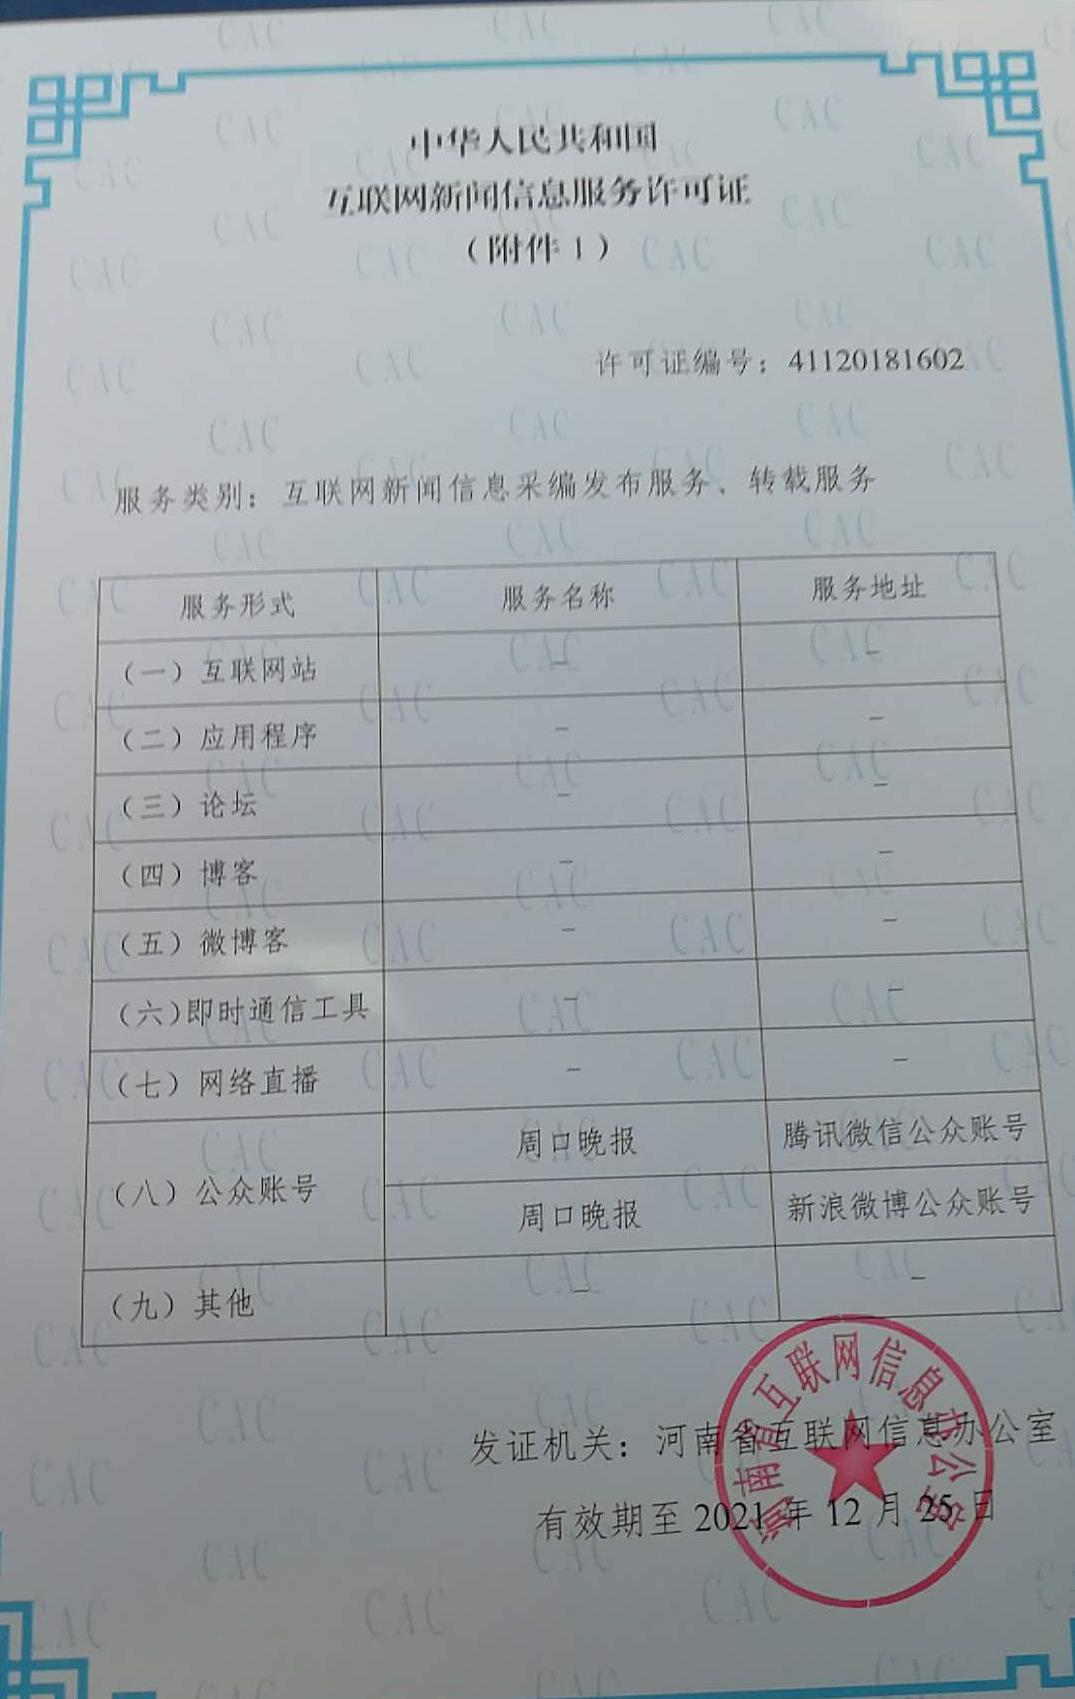 中华人民共和国
互联网新闻信息服务许可证
（附件1）
许可证编号：41120181602
服务类别：互联网新闻信息采编发布服务、转载服务
服务形式 服务名称 服务地址
（一）互联网站 – –
（二）应用程序 – –
（三）论坛 – –
（四）博客 – –
（五）微博客 – –
（六）即时通信工具 – –
（七）网络直播 – –
（八）公众账号 周口晚报 腾讯微信公众账号
周口晚报 新浪微博公众账号
（九）其他 – –
发证机关：河南省互联网信息办公室
有效期至 2021 年 12 月 25 日
河南省互联网信息办公室
CAC